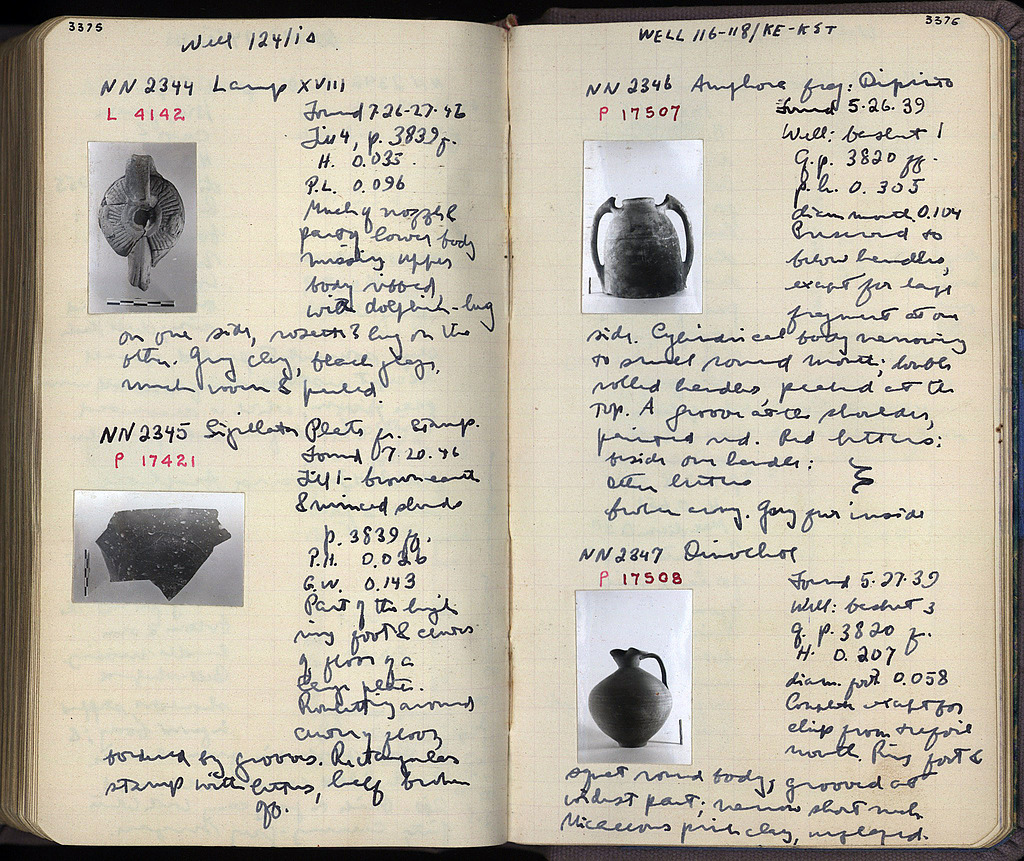 3375
Well 124/ΙΟ
NN 2344 Lamp XVIII
L 4142
Found 7-26-27-46
p. 3839 f.
H. 0.035
P.L. 0.096
Much of nozzle &
part of lower body
missing upper
body ribbed
with dolphin-lug
on one side, rosette? lug on the
other. Gray clay, black glaze,
much worn & peeled.
NN 2345 Sigillata Plate fr. Stamp.
P 17421
Found 7.20.46
Fill 1- brown earth
& minced sherds
p. 3839 ff.
P.H. 0.026
G.W. 0.143
Part of the high
ring foot & center
of floor of a
large plate.
Rouletting around
center of floor
bordered by grooves. Rectangular
stamp with letters, half broken
off.
3376
WELL 116-118/ΚΕ-ΚΣΤ
NN 2346 Amphora frag: Dipinto
P 17507
Found 5.26.39
Well: basket 1
q.p. 3820 ff.
p.h. 0.305
diam mouth 0.104
Preserved to
below handles,
except for large
fragment at one
side. Cylindrical body narrowing
to small round mouth; double
rolled handles, peaked at the
top. A groove at the shoulder,
painted red. Red letters:
beside one handle:
other letters
broken away. Gray fur inside
NN 2347 Oinochoe
P 17508
Found 5.27.39
Well: basket 3
q. p. 3820 f.
H. 0.207
diam. foot 0.058
Complete except for
chip from trefoil
mouth. Ring foot &
squat round body, grooved at
widest part; narrow short neck
Micaceous pink clay, unglazed.